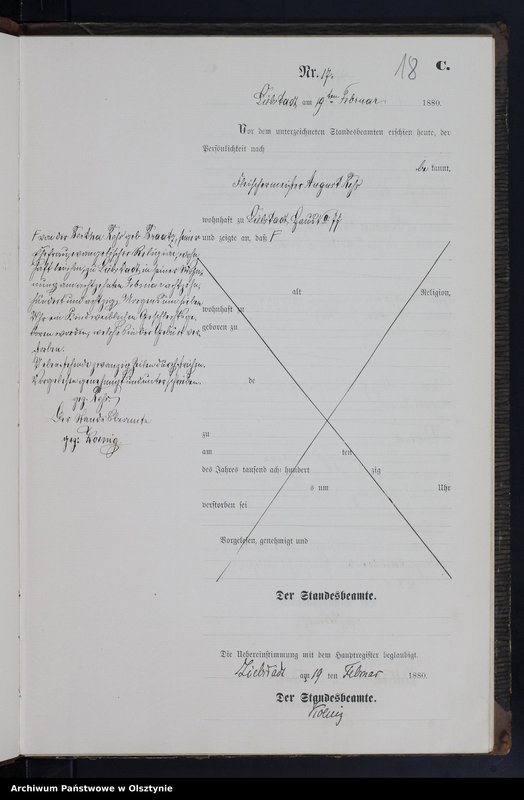 18 C.
Nr. 17.
Liebstadt, am 19ten Februar 1880.
Vor dem unterzeichneten Standesbeamten erschien heute, der
Persönlichkeit nach
be kannt,
Fleischermeister August
wohnhaft zu Liebstadt, Haus
und zeigte an, daß
alt Religion,
wohnhaft in
geboren zu
de
zu
am ten
des Jahres tausend acht hundert zig
s um Uhr
verstorben sei
Vorgelesen, genehmigt und
Der Standesbeamte.
Die Uebereinstimmung mit dem Hauptregister beglaubigt.
Liebstadt am 19 ten Februar 1880.
Der Standesbeamte.
Koenig
von der geb. seiner
Ehefrau, evangelischer Religion, wohn-
haft bei ihm, zu Liebstadt, in seiner Wohn-
ung am achtzehnten Februar achtzehn-
hundert und achtzig Morgens um sieben
Uhr ein Kind weiblichen Geschlechts ge-
boren worden, welches in der Geburt ver-
storben.
Vorstehende zwanzig Zeilen durchstrichen.
Vorgelesen genehmigt und unterschrieben
gez.
Der Standesbeamte
gez: Koenig
Archiwum Państwowe w Olsztynie